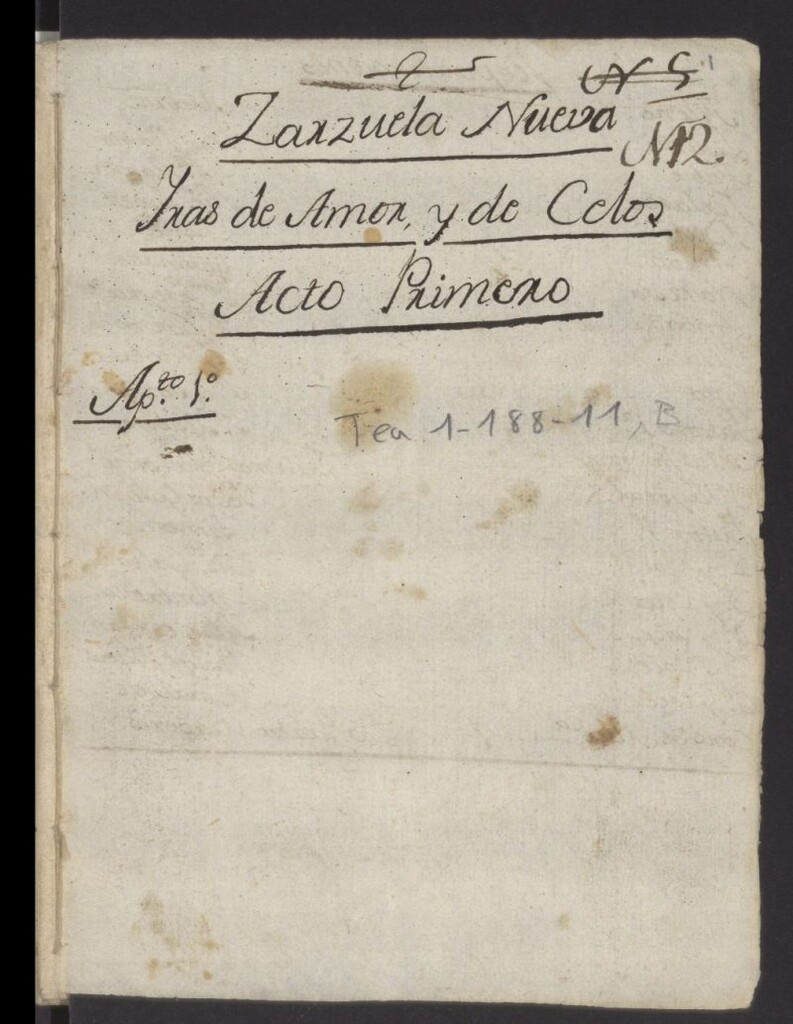 N 5
Zarzuela Nueva
N12.
Yras de Amor, y de Celos
Acto Primero
Ap.to 1.º
Tea 1-188-11, B